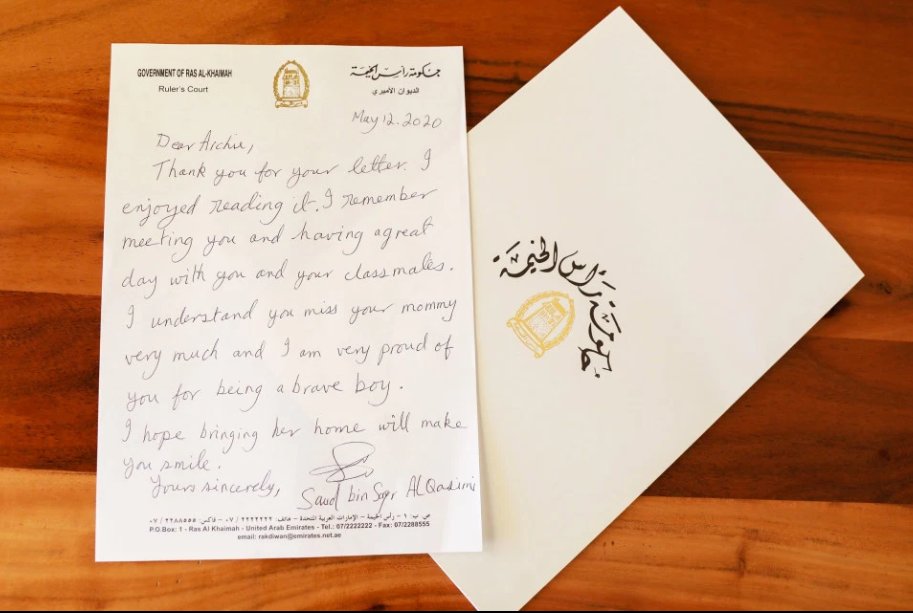 GOVERNMENT OF RAS AL-KHAIMAH
Ruler's Court
حكومة رأس الخيمة
الديوان الأميري
May 12. 2020
Dear Archie,
Thank you for your letter. I
enjoyed reading it. I remember
meeting you and having a great
day with you and your classmates.
I understand you miss your mommy
very much and I am very proud of
you for being a brave boy.
I hope bringing her home will make
you smile.
Yours sincerely,
Saud bin Saqr Al Qasimi
ص.ب: ١ - رأس الخيمة - الإمارات العربية المتحدة - هاتف: ٠٧/٢٢٢٢٢٢٢ - فاكس: ٠٧/٢٢٨٨٥٥٥
P.O.Box: 1 - Ras Al Khaimah - United Arab Emirates - Tel.: 07/2222222 - Fax: 07/2288555
email: rakdiwan@emirates.net.ae
حكومة رأس الخيمة